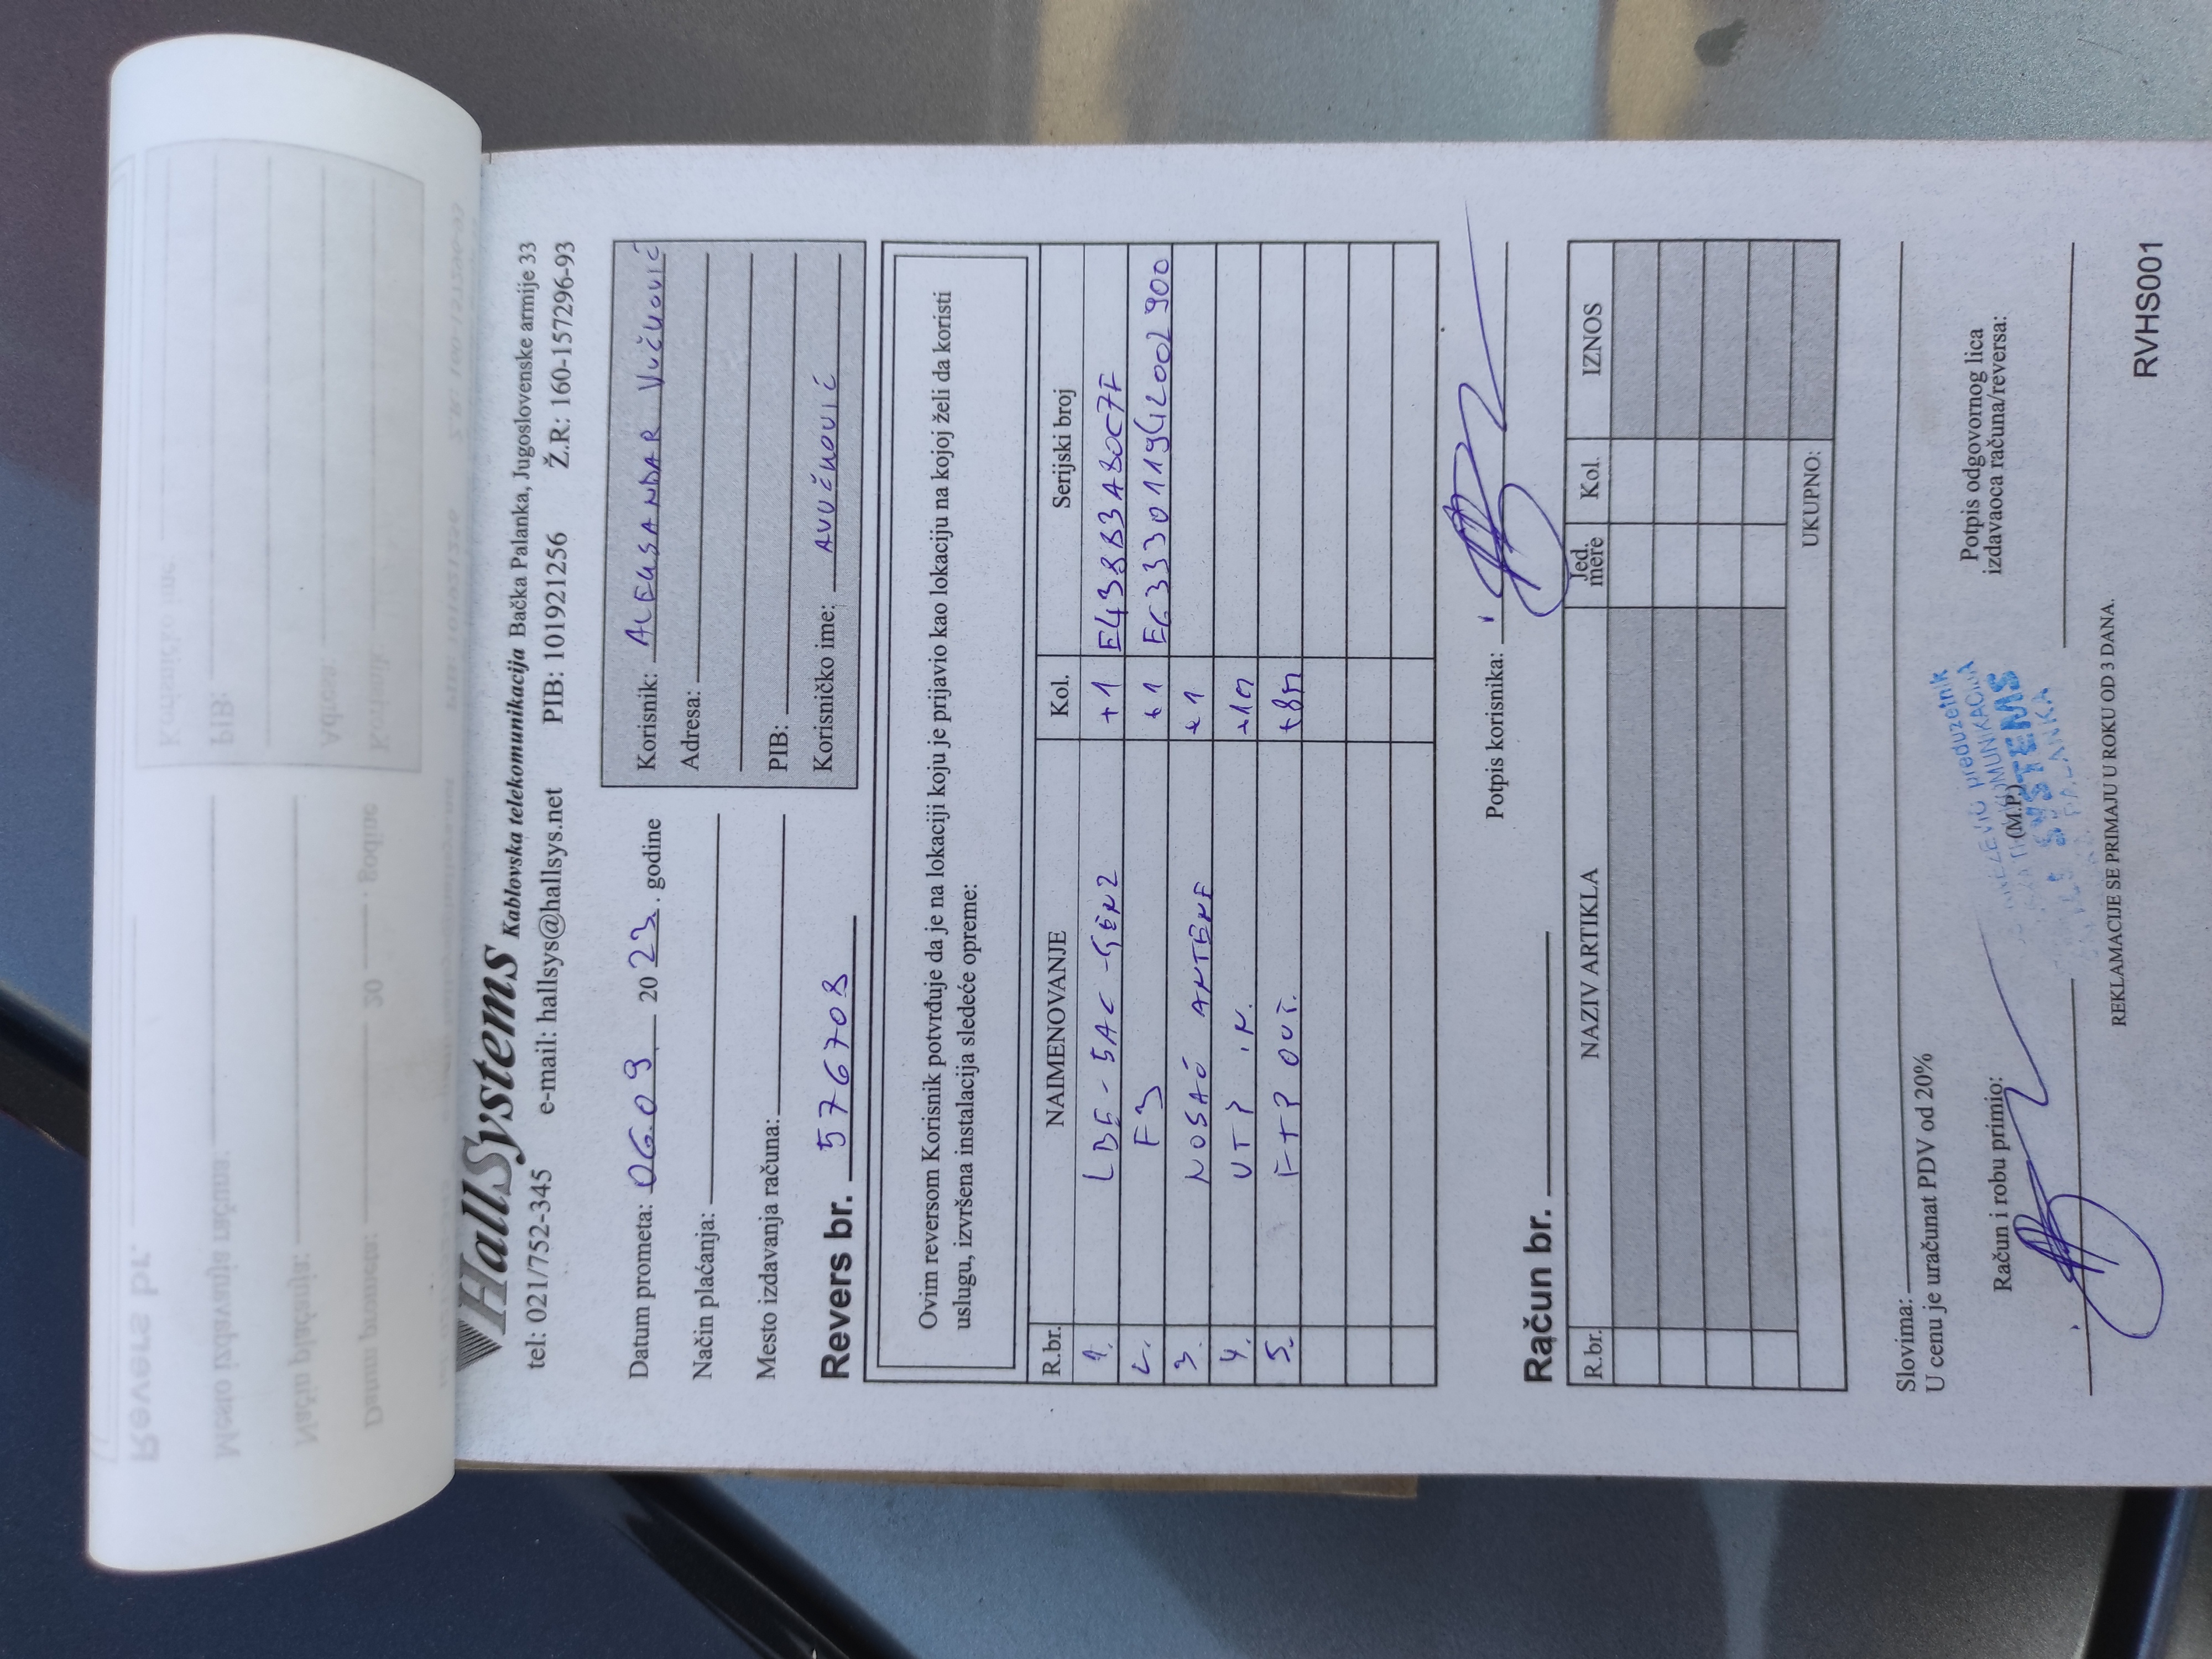 HallSystems Kablovska telekomunikacija Bačka Palanka, Jugoslovenske armije 33
tel: 021/752-345 e-mail: hallsys@hallsys.net PIB: 101921256 Ž.R: 160-157296-93
Datum prometa: 06.09 2023. godine
Način plaćanja:
Mesto izdavanja računa:
Revers br. 576708
Korisnik: ALEKSANDAR VUČKOVIĆ
Adresa:
PIB:
Korisničko ime: AVUČKOVIĆ
Ovim reversom Korisnik potvrđuje da je na lokaciji koju je prijavio kao lokaciju na kojoj želi da koristi
uslugu, izvršena instalacija sledeće opreme:
R.br. NAIMENOVANJE Kol. Serijski broj
1. LBE-5AC-GEN2 +1 E438B3A80C7F
2. F3 +1
3. NOSAČ ANTENE +1
4. UTP IN.
5. FTP OUT.
Potpis korisnika:
Račun br.
R.br. NAZIV ARTIKLA Jed. mere Kol. IZNOS
UKUPNO:
Slovima:
U cenu je uračunat PDV od 20%
Račun i robu primio:
(M.P.)
preduzetnik
SYSTEMS
PALANKA
Potpis odgovornog lica
izdavaoca računa/reversa:
REKLAMACIJE SE PRIMAJU U ROKU OD 3 DANA.
RVHS001